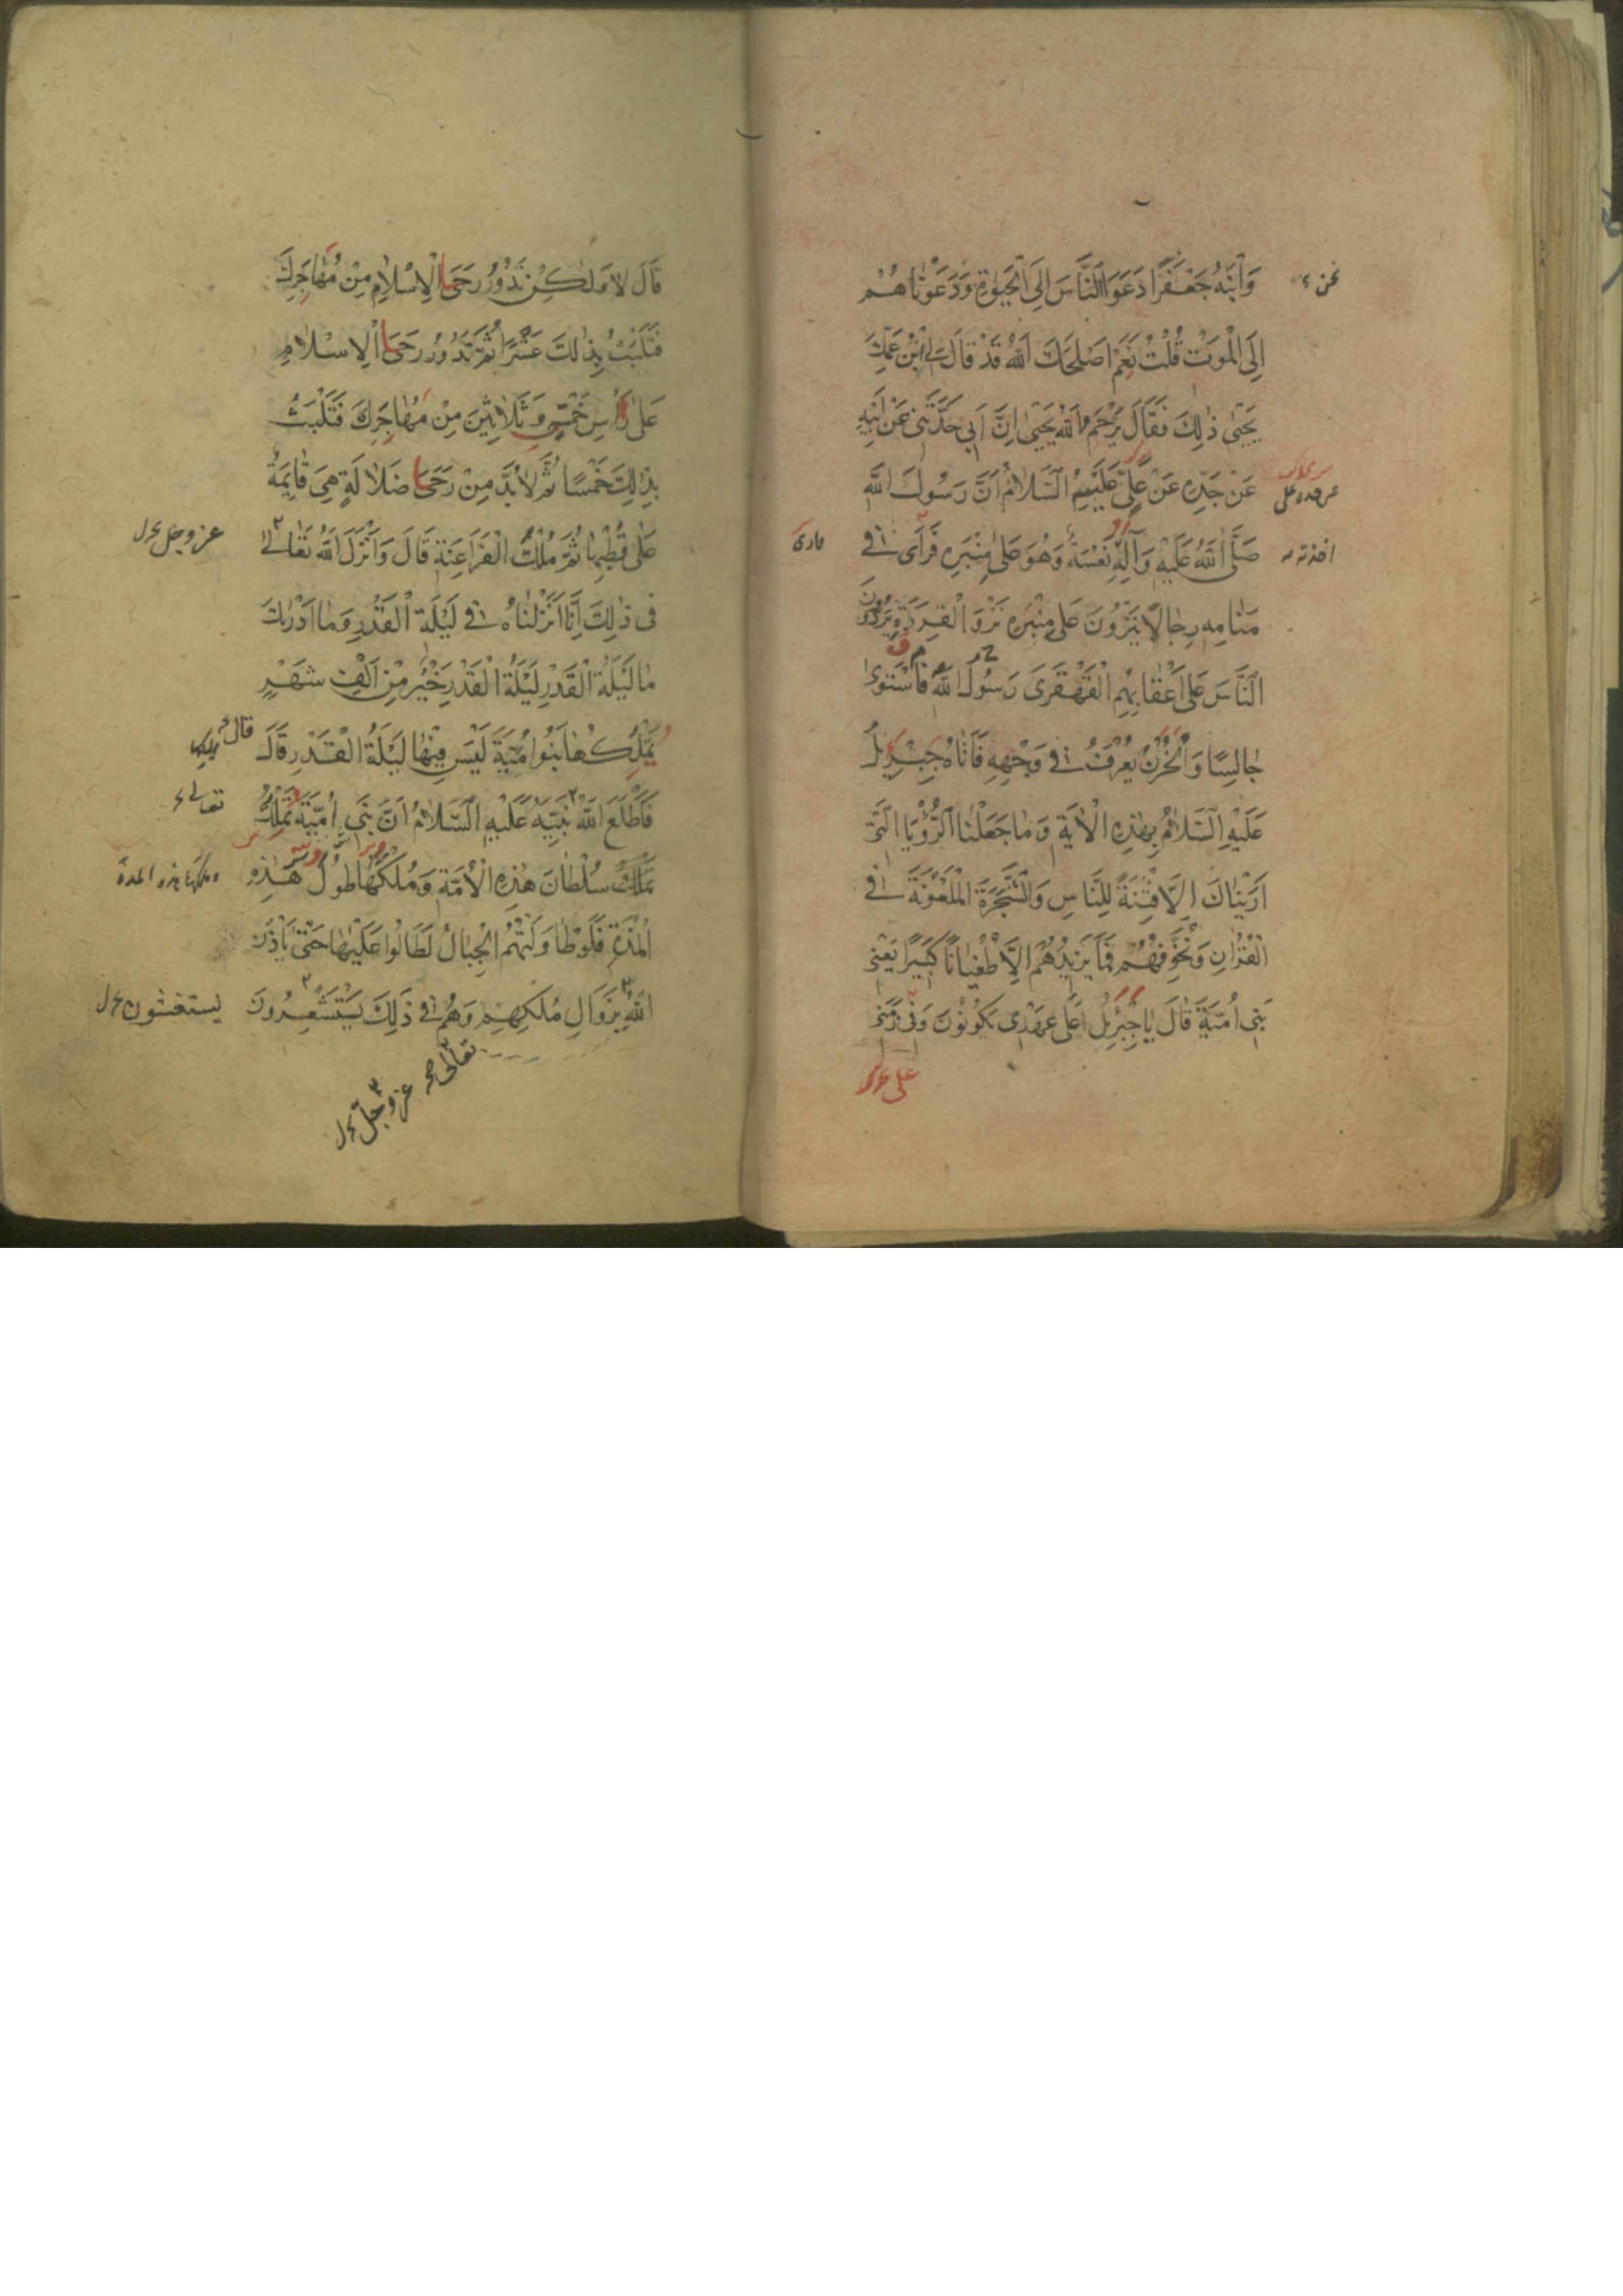 وَابْنَهُ جَعْفَرًا دَعَوَا النَّاسَ اِلَى الْحَيٰوةِ وَدَعَوْنَاهُمْ
نحن
اِلَى الْمَوْتِ قُلْتُ نَعَمْ اَصْلَحَكَ اللّٰهُ قَدْ قَالَ لِي ابْنُ عَمِّكَ
يَحْيٰى ذٰلِكَ فَقَالَ يَرْحَمُ اللّٰهُ يَحْيٰى اِنَّ اَبِي حَدَّثَنِي عَنْ اَبِيهِ
عَنْ جَدِّهِ عَنْ عَلِيٍّ عَلَيْهِمُ السَّلَامُ اَنَّ رَسُولَ اللّٰهِ
عن جده على
صَلَّى اللّٰهُ عَلَيْهِ وَآلِهِ نَعْسَةٌ وَهُوَ عَلٰى مِنْبَرِهِ فَرَأَى فِي
اخذته
مَنَامِهِ رِجَالًا يَنْزُونَ عَلٰى مِنْبَرِهِ نَزْوَ الْقِرَدَةِ يَرُدُّونَ
النَّاسَ عَلٰى اَعْقَابِهِمُ الْقَهْقَرَى رَسُولُ اللّٰهِ فَاسْتَوٰى
جَالِسًا وَالْحُزْنُ يُعْرَفُ فِي وَجْهِهِ فَاَتَاهُ جِبْرِيلُ
عَلَيْهِ السَّلَامُ بِهٰذِهِ الْاٰيَةِ وَمَا جَعَلْنَا الرُّؤْيَا الَّتِي
اَرَيْنَاكَ اِلَّا فِتْنَةً لِلنَّاسِ وَالشَّجَرَةَ الْمَلْعُونَةَ فِي
الْقُرْاٰنِ وَنُخَوِّفُهُمْ فَمَا يَزِيدُهُمْ اِلَّا طُغْيَانًا كَبِيرًا يَعْنِي
بَنِي اُمَيَّةَ قَالَ يَا جِبْرِيلُ اَعَلٰى عَهْدِي يَكُونُونَ وَفِي زَمَنِي
قَالَ لَا وَلٰكِنْ تَدُورُ رَحَى الْاِسْلَامِ مِنْ مُهَاجَرِكَ
فَتَلْبَثُ بِذٰلِكَ عَشْرًا ثُمَّ تَدُورُ رَحَى الْاِسْلَامِ
عَلٰى رَأْسِ خَمْسٍ وَثَلَاثِينَ مِنْ مُهَاجَرِكَ فَتَلْبَثُ
بِذٰلِكَ خَمْسًا ثُمَّ لَابُدَّ مِنْ رَحَى ضَلَالَةٍ هِيَ قَائِمَةٌ
عَلٰى قُطْبِهَا ثُمَّ مُلْكُ الْفَرَاعِنَةِ قَالَ وَاَنْزَلَ اللّٰهُ تَعَالٰى
عز وجل
فِي ذٰلِكَ اِنَّا اَنْزَلْنَاهُ فِي لَيْلَةِ الْقَدْرِ وَمَا اَدْرٰىكَ
مَا لَيْلَةُ الْقَدْرِ لَيْلَةُ الْقَدْرِ خَيْرٌ مِنْ اَلْفِ شَهْرٍ
يَمْلِكُهَا بَنُو اُمَيَّةَ لَيْسَ فِيهَا لَيْلَةُ الْقَدْرِ قَالَ
قال
فَاَطْلَعَ اللّٰهُ نَبِيَّهُ عَلَيْهِ السَّلَامُ اَنَّ بَنِي اُمَيَّةَ تَمْلِكُ
تعالى
سُلْطَانَ هٰذِهِ الْاُمَّةِ وَمُلْكَهَا طُولَ هٰذِهِ
وملكها هذه المدة
الْمُدَّةِ فَلَوْ طَاوَلَتْهُمُ الْجِبَالُ لَطَالُوا عَلَيْهَا حَتّٰى يَأْذَنَ
اللّٰهُ بِزَوَالِ مُلْكِهِمْ وَهُمْ فِي ذٰلِكَ يَسْتَشْعِرُونَ
تعالى صح عز وجل